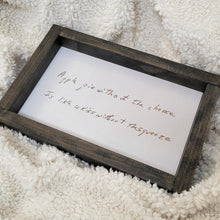 Apple pie without the cheese
Is like a kiss without the squeeze